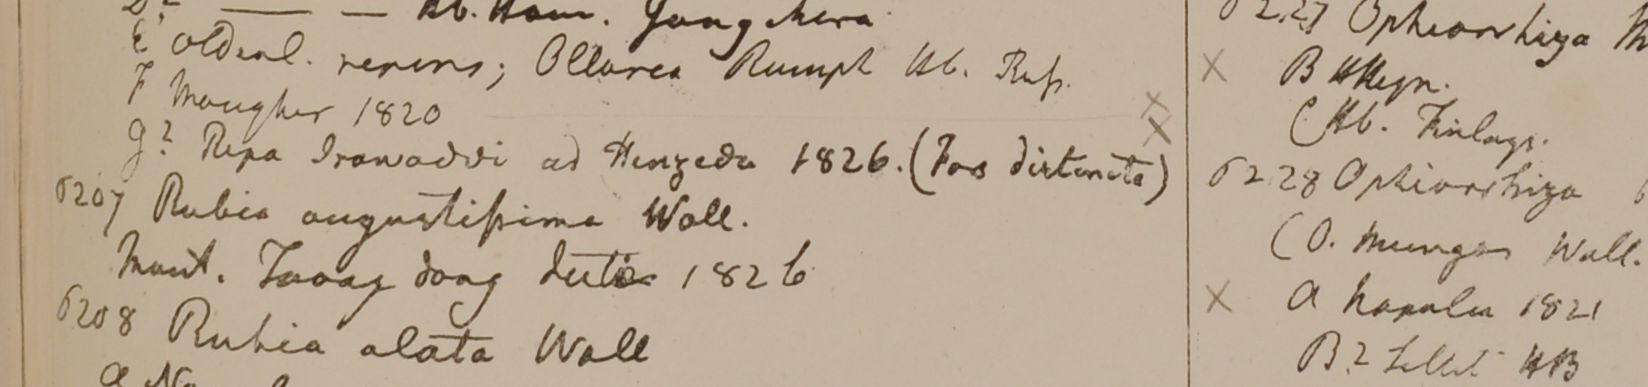 D? — — Hb. Ham. Gongachora
E oldenl. repens; Ollarea Rumph Hb. Rufs.
F 1820
G? Ripa Irawaddi ad Henzeda 1826. (Fors distincta)
6207 Rubia angustissima Wall.
Mont. Taong dong 1826
6208 Rubia alata Wall
a
6227 Ophiorrhiza
B HHeyn.
C Hb. Finlays.
6228 Ophiorrhiza
(O. mungos Wall.
a Napalia 1821
B.? Sillet HB